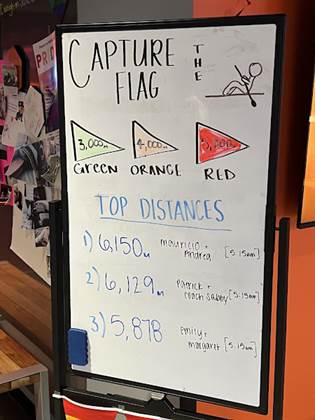 CAPTURE THE
FLAG
3,000m 4,000m 5,000m
Green ORANGE RED
TOP DISTANCES
1) 6,150m mauricio + Andrea [5:15am]
2) 6,129m Patrick + coach Sabby [5:15am]
3) 5,878 emily + margaret [5:15am]